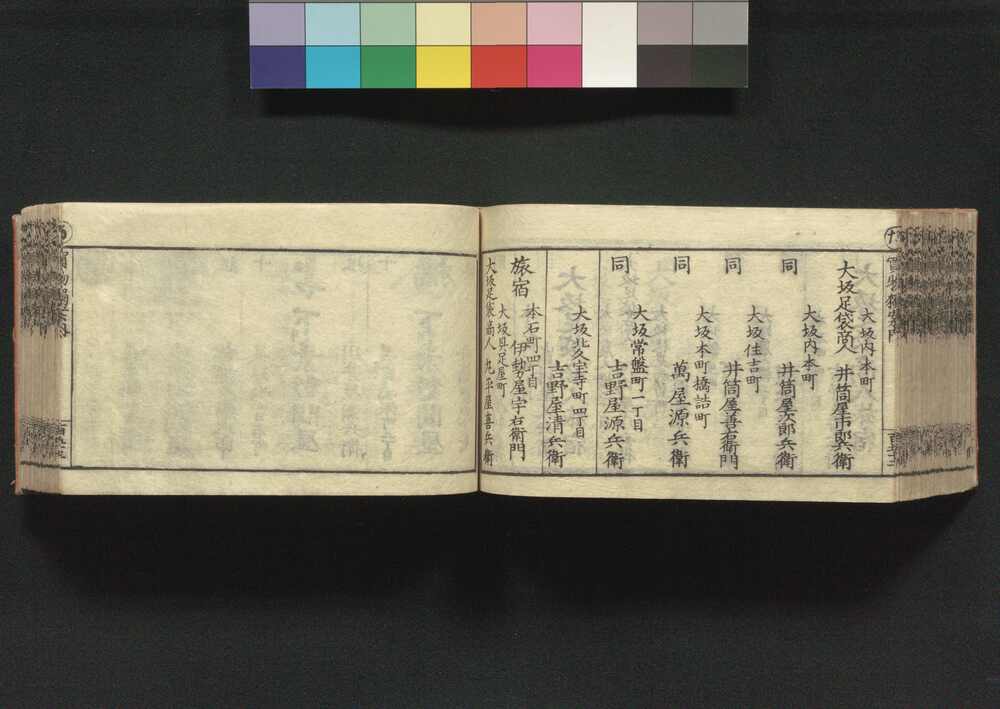 大坂内本町
大坂足袋商人 井筒屋市郎兵衛
大坂内本町
同 井筒屋次郎兵衛
大坂住吉町
同 井筒屋善右衛門
大坂本町橋詰町
同 萬屋源兵衛
大坂常盤町一丁目
同 吉野屋源兵衛
大坂北久宝寺町四丁目
吉野屋清兵衛
本石町四丁目
旅宿 伊勢屋宇右衛門
大坂具足屋町
大坂足袋商人 丸平屋喜兵衛